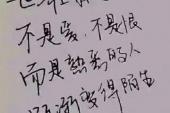 不是爱，不是恨
而是熟悉的人
渐变得陌生